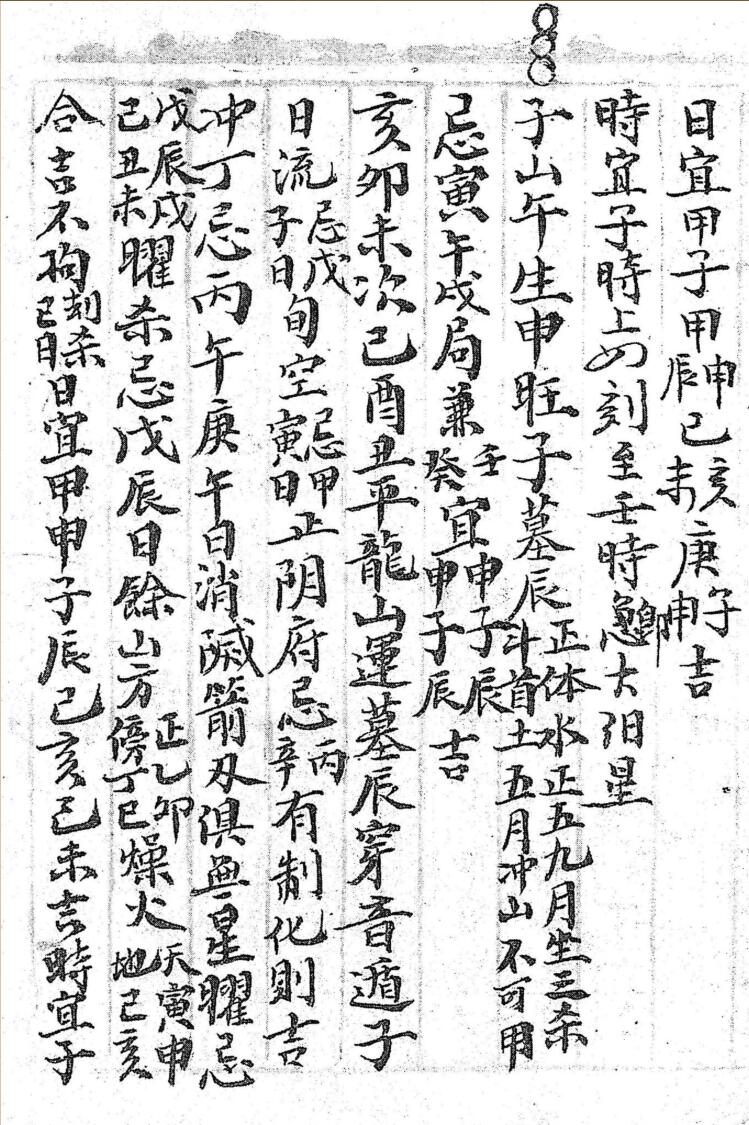 日宜甲子甲申辰己亥未庚子申吉
時宜子時上四刻至壬時大陽星
子山午生申旺子墓辰正体水正五九月坐三杀斗首土五月冲山不可用
忌寅午戌局兼壬癸宜申子辰申子辰吉
亥卯未次巳酉丑平龍山運墓辰穿音遁子
日流忌戊子日旬空忌甲寅日正阴府忌丙辛有制化則吉
冲丁忌丙午庚午日消滅箭刃俱無星曜忌
戊辰戌己丑未曜杀忌戊辰日餘山方正乙卯傍丁巳燥火天寅申地己亥
合吉不拘刦杀巳日日宜甲申子辰己亥己未吉時宜子